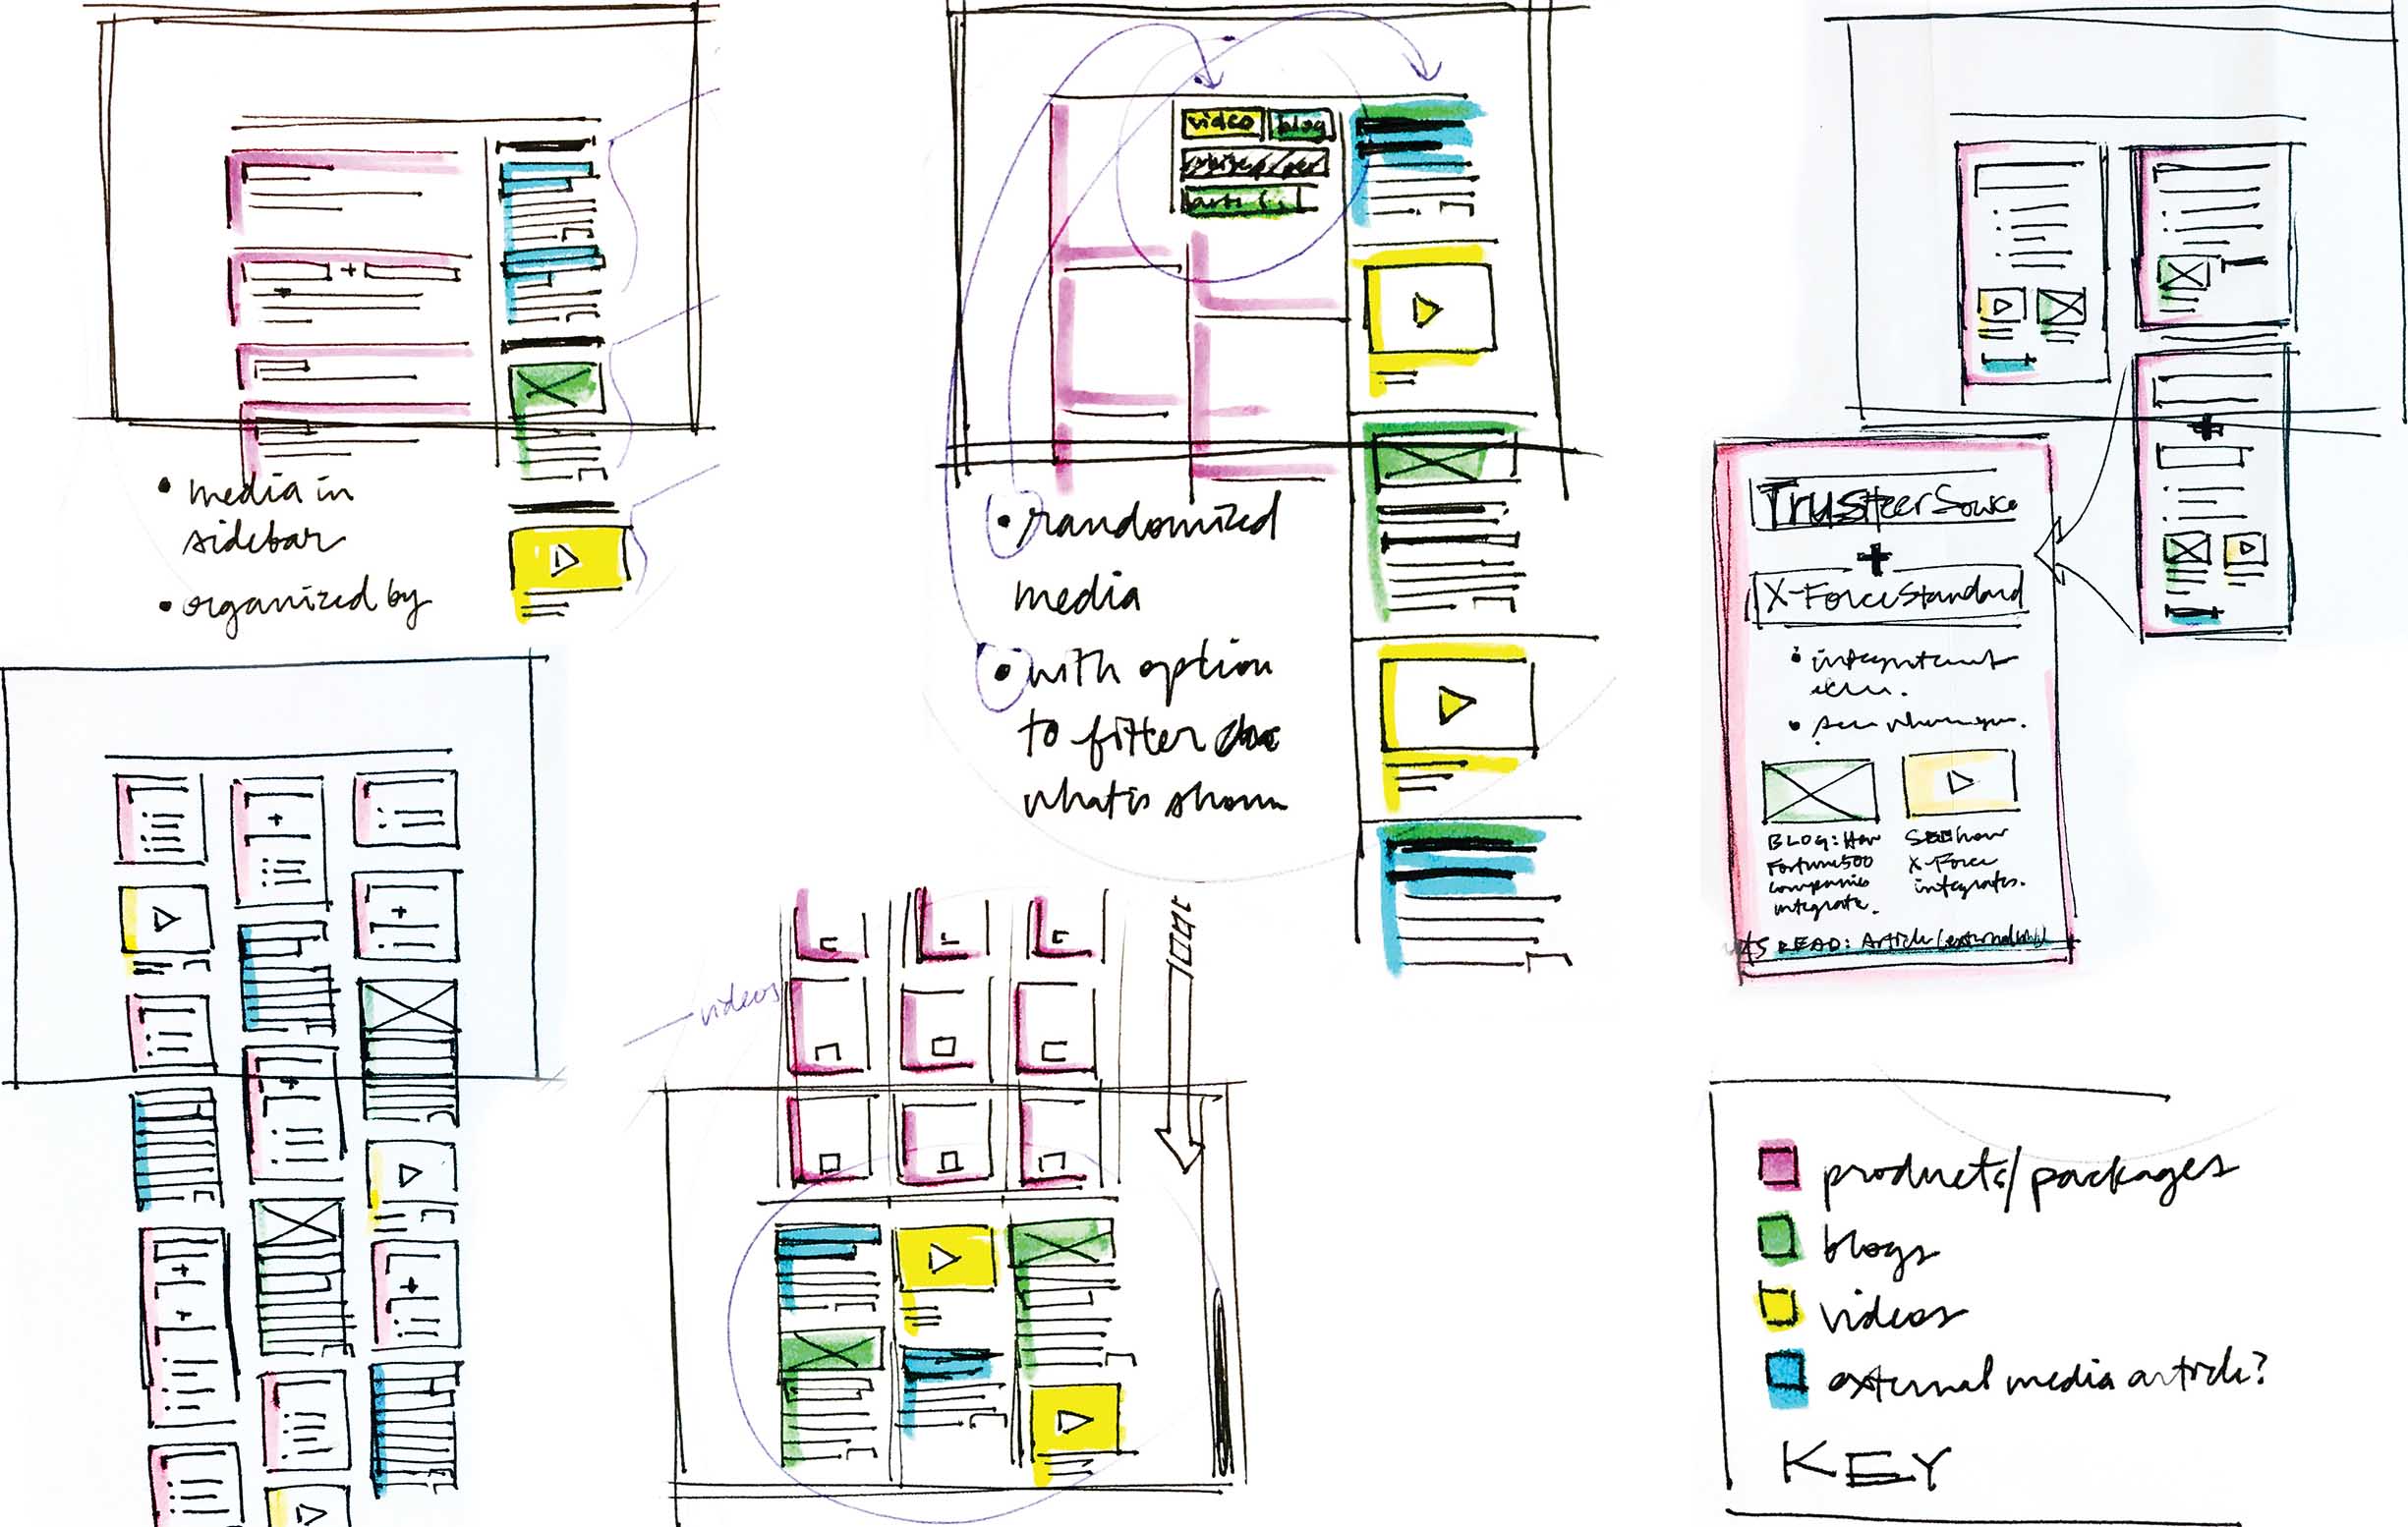 • media in
sidebar
• organized by
video blog
• randomized
media
• with option
to filter
what is shown
Trusteer Source
+
X-Force Standard
•
• see
BLOG: How
Fortune 500
companies
integrate.
SEE how
X-Force
integrates.
READ: Article (external
videos
products/packages
blogs
videos
external media article?
KEY